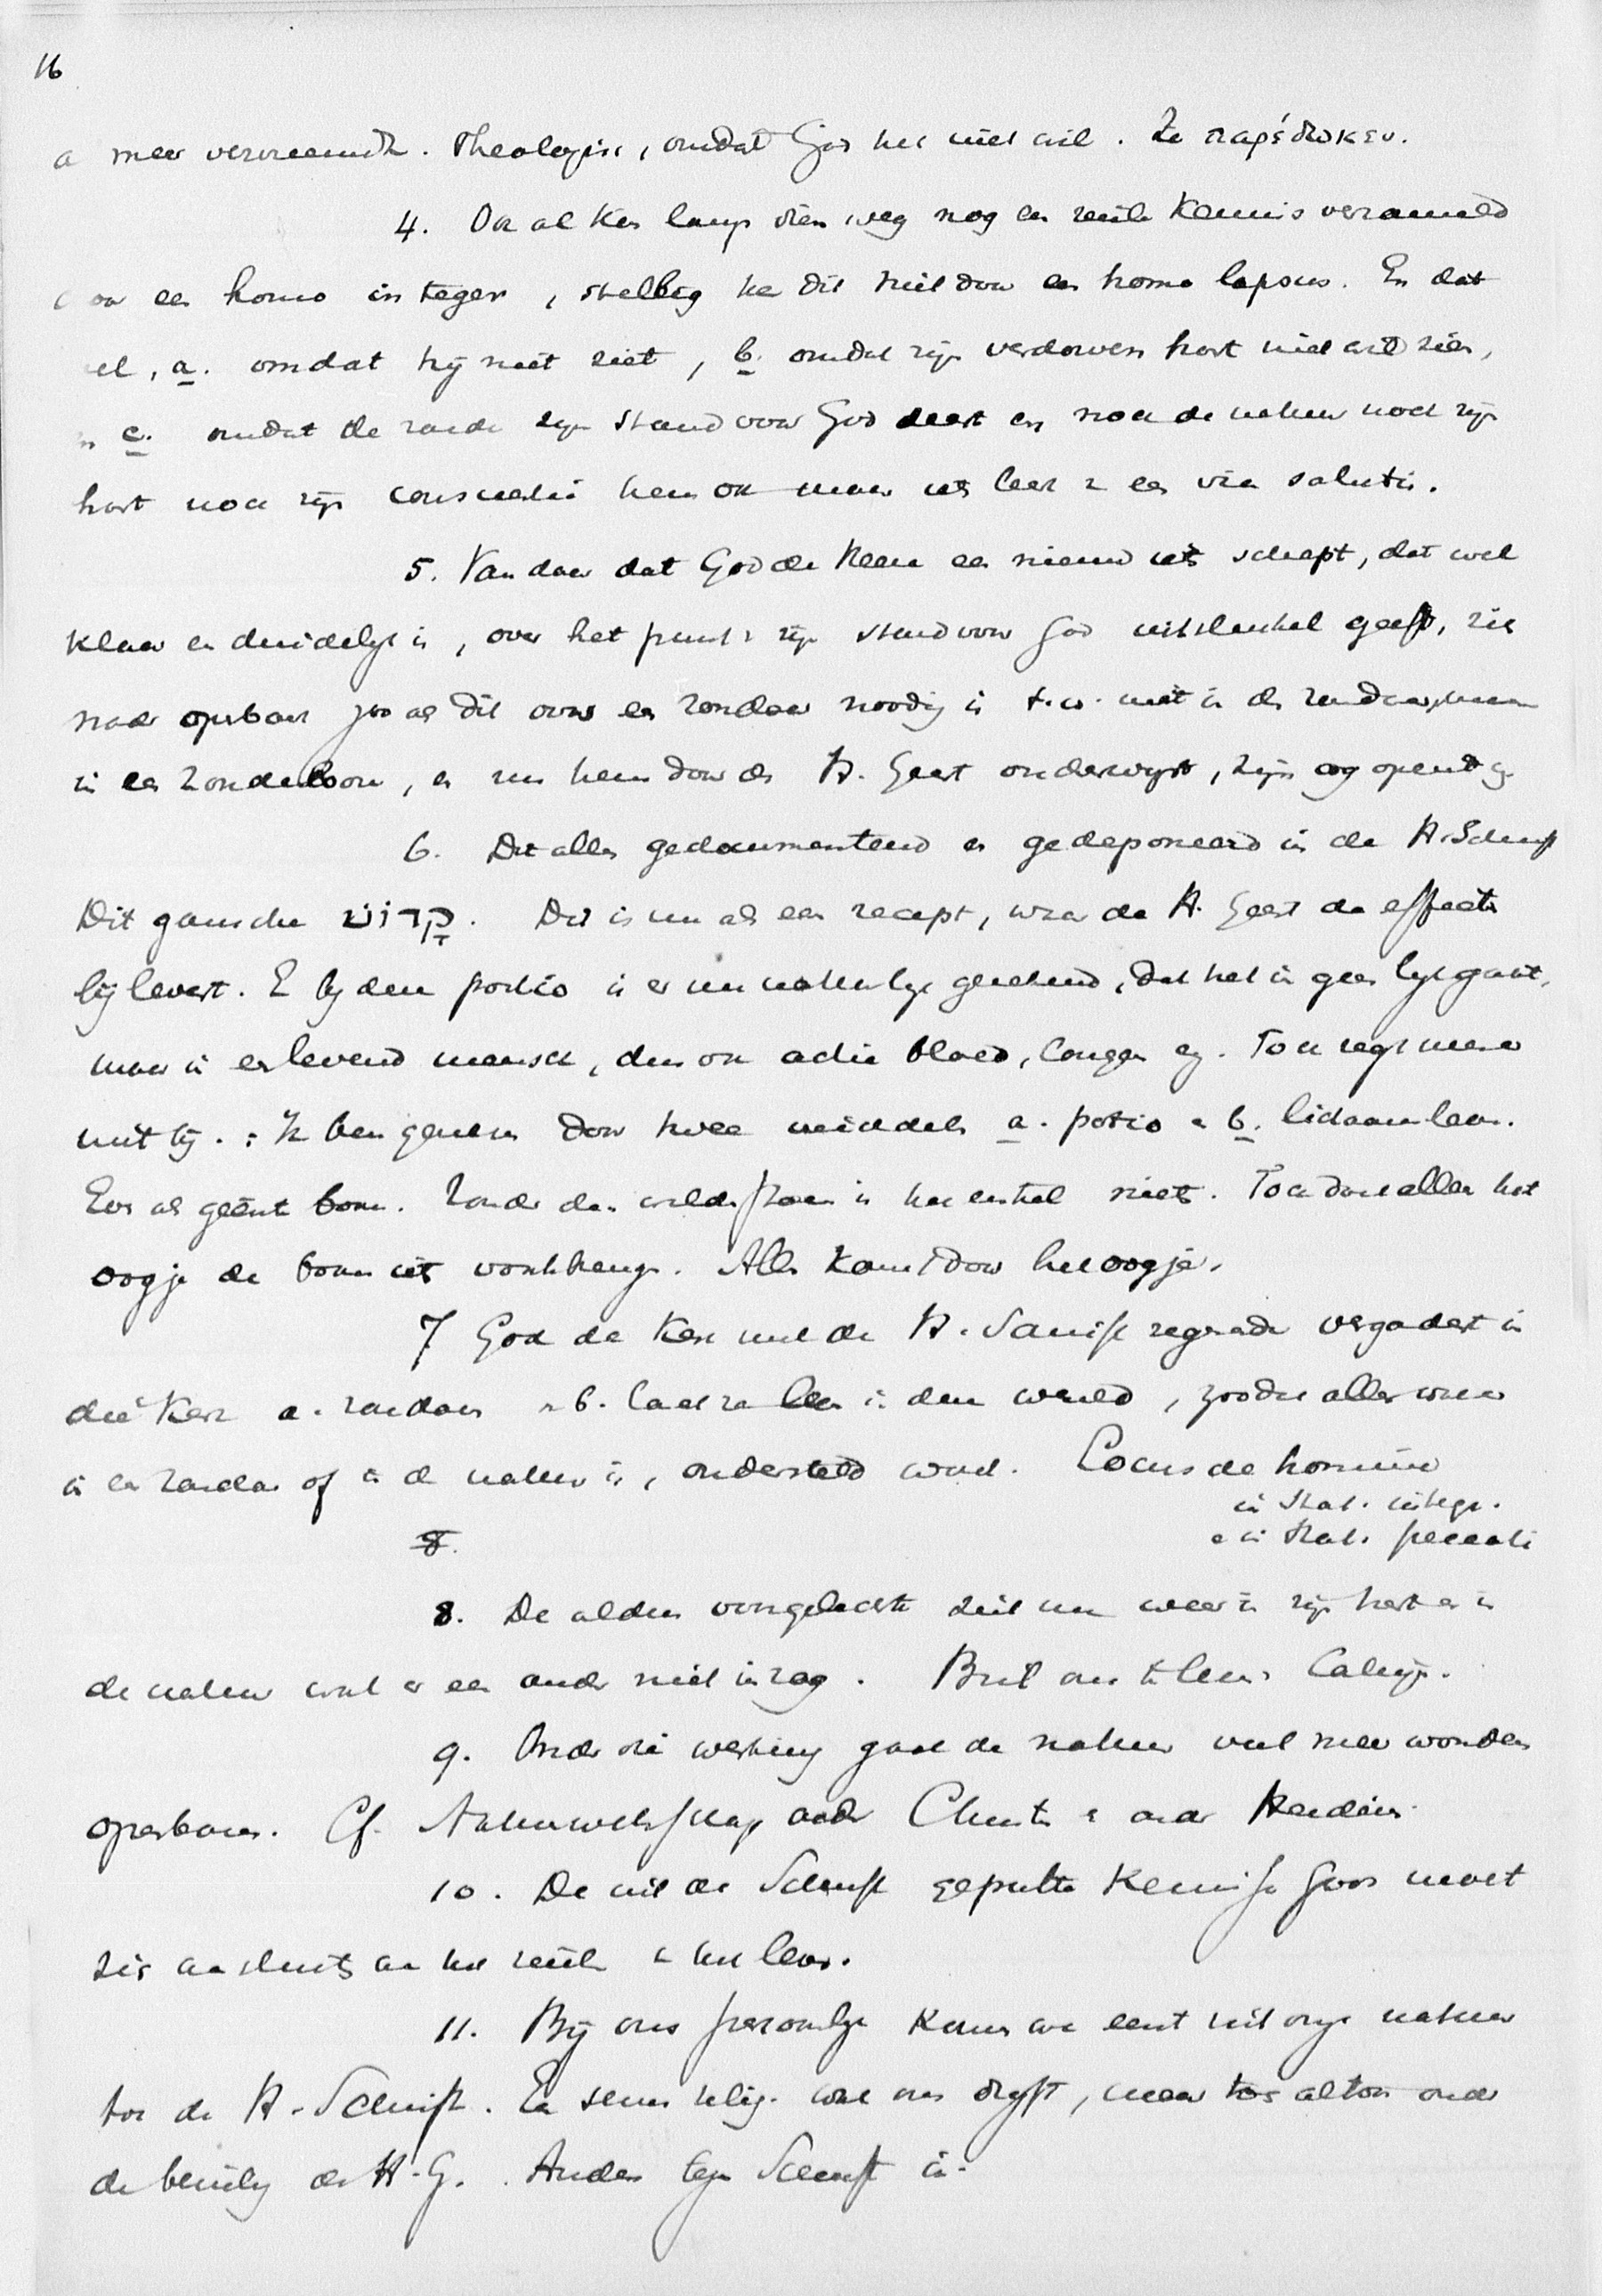 16
a meer vervreemdt. Theologisch, omdat God het niet wil. Ze παρέδωκεν.
4. Ook al kon langs dien weg nog een reëele Kennis verzameld
door een homo integer, stellig kan dit niet door een homo lapsus. En dat
wel, a. omdat hij niet ziet, b. omdat zijn verdorven hart niet wil zien,
en c. omdat de zonde zijn stand voor God deert en noch de natuur noch zijn
hart noch zijn conscientie hem ook maar iets leert v een via salutis.
5. Van daar dat God de Heere een nieuw iets schept, dat wel
klaar en duidelijk is, over het punt v zijn stand voor God uitsluitsel geeft, zich
nader openbaart zoo als dit voor een zondaar noodig is t.w. niet in de zondaar, maar
in een Zondeloozen, en nu hem door den H. Geest onderwijst, zijn oog opent ez
6. Dit alles gedocumenteerd en gedeponeerd in de H. Schrift
Dit gansche קדש. Dit is nu als een recept, waar de H. Geest de effecten
bij levert. E bij den potio is er nu natuurlijk gerekend, dat het in geen lijk gaat,
maar in een levend mensch, dus ook actie bloed, longen ez. Toch zegt men
niet bij.: Ik ben genezen door twee middelen a. potio en b. lichaamleven.
Even als geënt boom. Zonder den wilden stam is het entsel niets. Toch doet alleen het
oogje de boom iets voortbrengen. Alles komt door het oogje.
7 God de Kerk met de H. Schrift zegenende vergadert in
die Kerk a. zondaars en b. laat ze leven in den wereld, zoodat alles wat er
in een zondaar of in de natuur is, ondersteld word. Locus de homine
in stat. integr.
en in stat. peccati
8.
8. De aldus voorgelichte ziet nu weer in zijn hart en in
de natuur wat er een ander niet in zag. Bril om te lezen Calvijn.
9. Onder die werking gaat de natuur veel meer wonderen
openbaren. Cf. Natuurwetenschap onder Christen en onder Heidenen.
10. De uit de Schrift geputte Kennis Gods moet
zich aansluiten aan het reëele in het leven.
11. Bij ons persoonlijk komen we eerst uit onze natuur
tot de H. Schrift. Een semen relig. wat ons drijft, maar toch altoos onder
de bezieling des H.G. Anders tegen Schrift in.